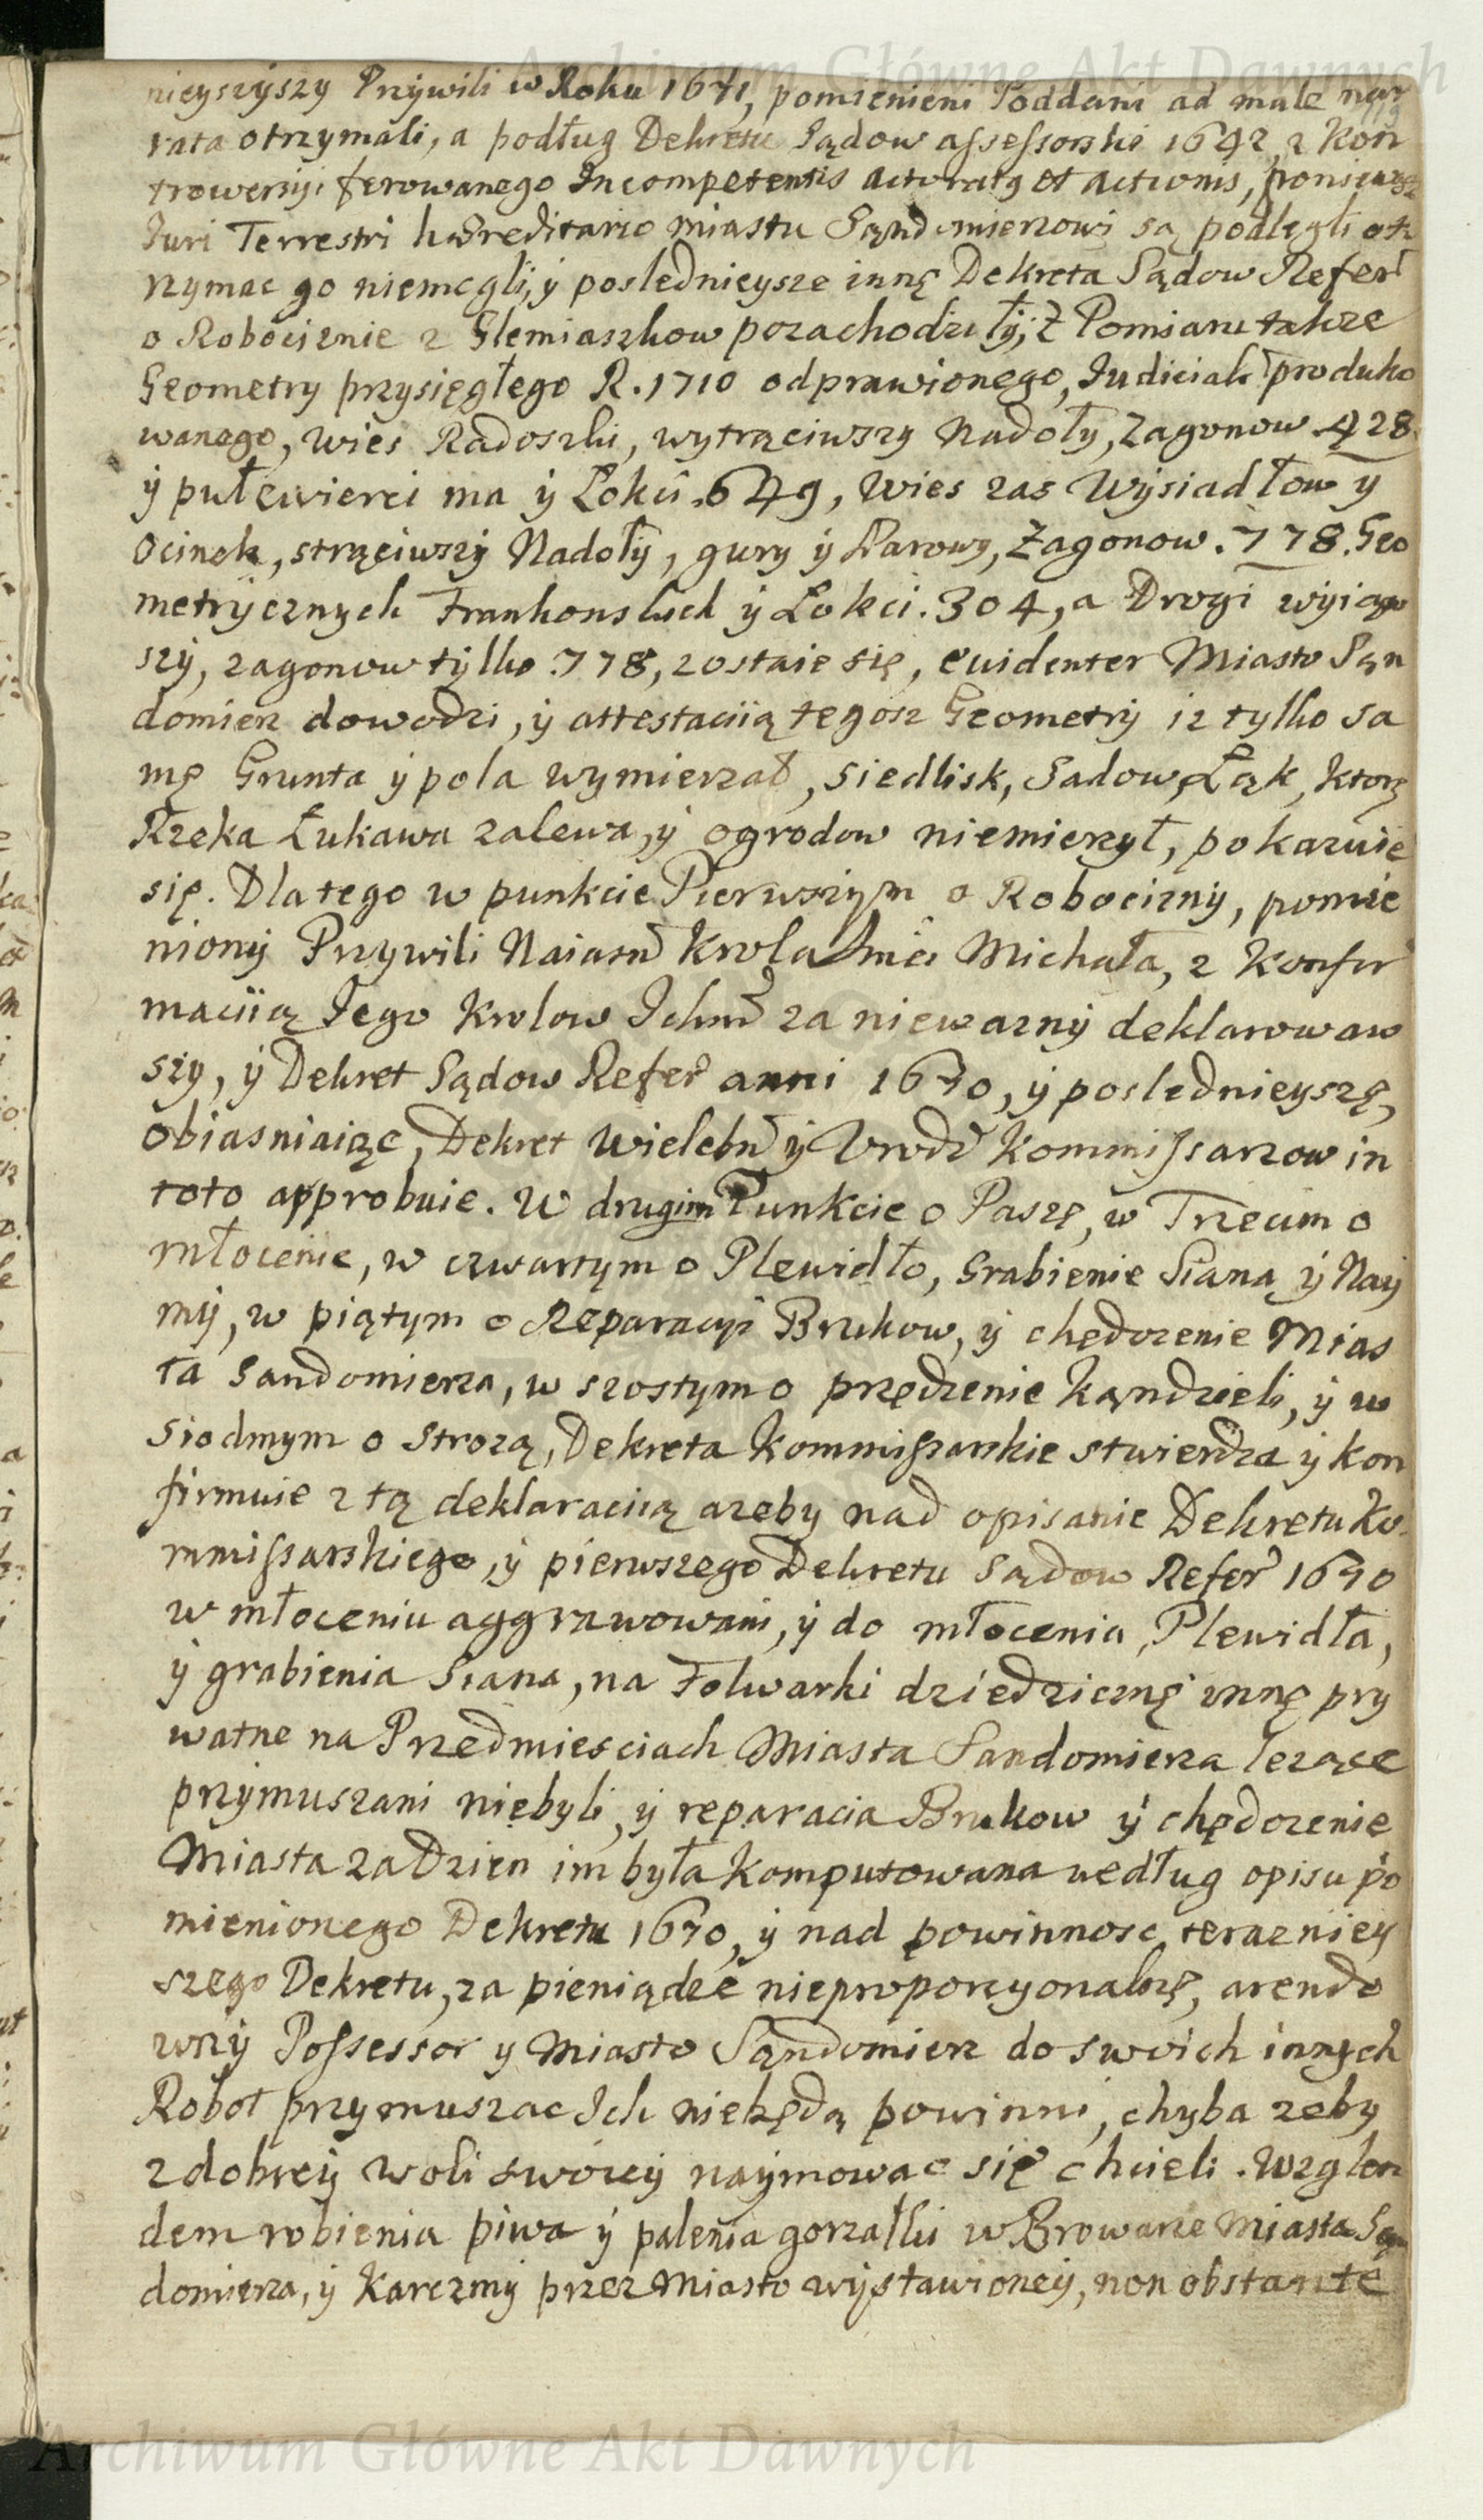 Archiwum Główne Akt Dawnych
nieyszyszy Przywili w Roku 1671, pomienieni Poddani ad male nar
rata otrzymali, a podług Dekretu Sądow assessorski 1642, z Kon
trowersyi ferowanego Incompetentis actoratg et actionis, poniewasz
Iuri Terrestri hæreditario miastu Sąndomierzowi są podlegli ot
rzymac go niemogli, y poslednieysze innę Dekreta Sądow Refer
o Robociznie z Slemiaszkow pozachodziły, Z Pomiaru takze
Geometry przysięgłego R. 1710 odprawionego, Iudicialr produko
wanego, wies Radoszki, wytrąciwszy Nadoły, Zagonow 428
y pułcwierci ma y Łokci 649, Wies zas Wysiadłow y
Ocinek, strąciwszy Nadoły, gury y Parowy, Zagonow . 778. Geo
metrycznych Frankonskich y Łokci . 304, a Drogi wyiąw
szy, zagonow tylko 778, zostaie się, evidenter Miasto Sąn
domierz dowodzi, y attestaciią tegosz Geometry iz tylko sa
mę Grunta y pola wymierzał, siedlisk, Sadow, Łąk, ktorę
Rzeka Łukawa zalewa, y ogrodow niemierzył, pokazuie
się. Dlatego w punkcie Pierwszym o Robocizny, pomie
niony Przywili Naiasn Krola Jmci Michała, z Konfir
maciią Jego Krolow Ichm za niewazny deklarowaw
szy, y Dekret Sądow Refer anni 1670, y poslednieyszę,
obiasniaiąc, Dekret Wielebn y Vrodz Kommissarzow in
toto approbuie. W drugim Punkcie o Paszę, w Trzecim o
młocenie, w czwartym o Plewidło, Grabienie Siana y Nay
my, w piątym o Reparacyi Brukow, y chędozenie Mias
ta Sandomierza, w szostym o przędzenie Kądzieli, y w
Siodmym o Strozą, Dekreta Kommissarskie stwierdza y kon
firmuie z tą deklaraciią azeby nad opisanie Dekretu Ko
mmissarskiego, y pierwszego Dekretu Sądow Refer 1670
w młoceniu aggrawowani, y do młocenia, Plewidła,
y grabienia Siana, na Folwarki dziedzicznę innę pry
watne na Przedmiesciach Miasta Sandomierza lezące
przymuszani niebyli, y reparacia Brukow y chędozenie
Miasta za Dzien im była Komputowana według opisu po
mienionego Dekretu 1670, y nad powinnosc terazniey
szego Dekretu, za pieniądze nieproporcyonalnę, arendo
wny Possessor y Miasto Sąndomierz do swoich innych
Robot przymuszac Ich niebędą powinni, chyba zeby
z dobrey woli swoiey naymowac się chcieli. Wzglen
dem robienia piwa y palenia gorzałki w Browarze Miasta Sąn
domierza, y Karczmy przez Miasto wystawioney, non obstante
Archiwum Główne Akt Dawnych